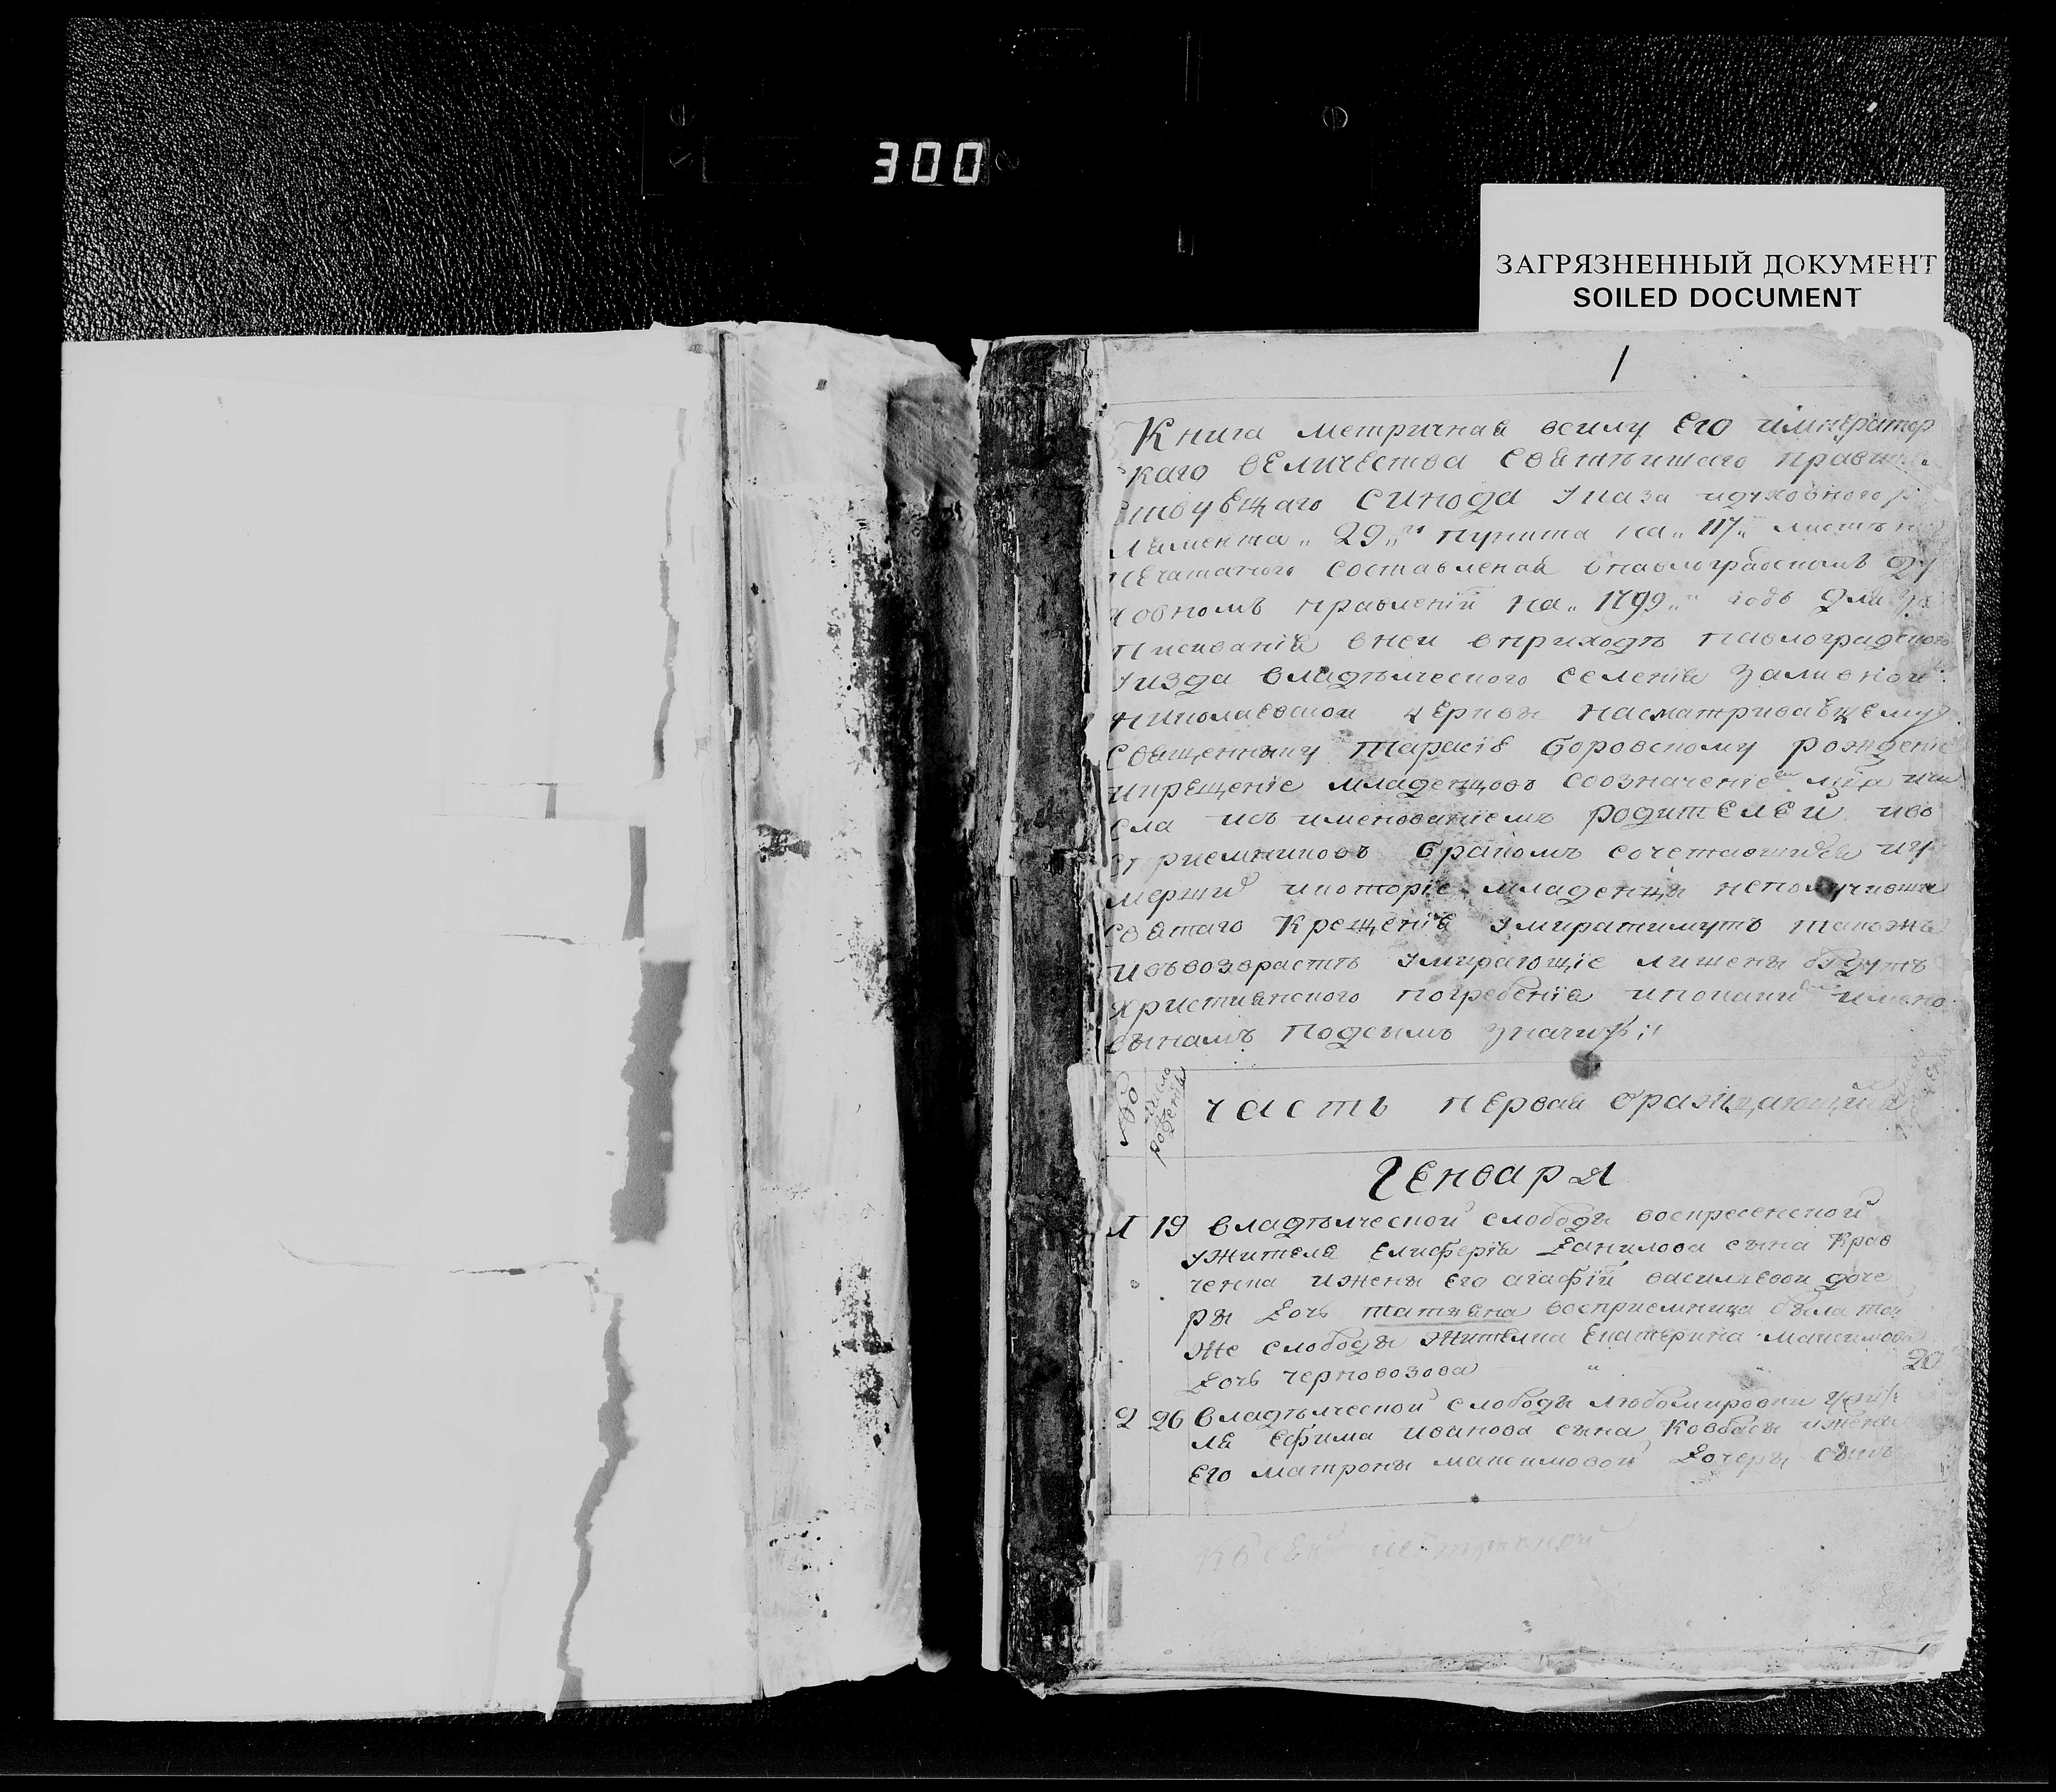 300
ЗАГРЯЗНЕННЫЙ ДОКУМЕНТ
SOILED DOCUMENT
1
Книга метричная всилу Его император
каго величества святѣишаго правит
ствующаго синода указа идуховного
ламента „29„го пункта на „117„ листѣ
печатаного составленая впавлоградскомъ ду
ховномъ правленіи на „1799„ годъ для
писиванія вней вприходѣ павлоградского
уизда владѣлческого селенія заливной
николаевской церкви насматривающему
священнику тарасію боровскому рожденіе
икрещеніе младенцовъ созначеніем мца ичи
сла исъ именованіемъ родителей ивo
сприемниковъ бракомъ сочетавшихся иу
мерших икоторіе младенци неполучивши
святаго крещенія умиратимутъ такожъ
ивъвозврастѣ умирающіе лишены будутъ
християнского погребенія ипокаких имено
вынамъ подсимъ значитъ
№
число
рожденія
часть первая оражда
Генваря
1 19 владѣлческой слободы воскресенской
ужителя елиферія данилова сына Крав
ченка ижены его агафіи василиевой доче
ры дочь татияна восприемница была той
же слободы жителка екатерина максимова
дочь черновозова
20
2 26 владѣлческой слободы любомировки ужите
ля ефима иванова сына ковбасы ижены
его матроны максимовой дочеры сынъ